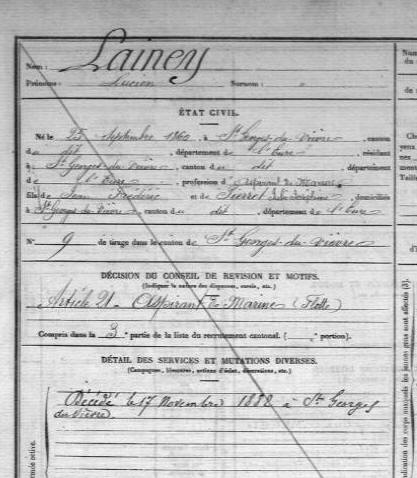 Nom : Lainey
Prénoms : Lucien Surnom : "
ÉTAT CIVIL.
Né le 25 Septembre 1860, à St Georges-du-Vièvre, canton
du dit, département de l'Eure, résidant
à St Georges-du-Vièvre, canton du dit, département
de l'Eure, profession d'Aspirant de Marine,
fils de Jean Frédéric et de domiciliés
à St Georges-du-Vièvre, canton du dit, département de l'Eure
N° 9 de tirage dans le canton de St Georges-du-Vièvre
DÉCISION DU CONSEIL DE REVISION ET MOTIFS.
(Indiquer la nature des dispenses, sursis, etc.)
Article 21. Aspirant de Marine (Flotte)
Compris dans la 3e partie de la liste du recrutement cantonal. ( " portion).
DÉTAIL DES SERVICES ET MUTATIONS DIVERSES.
(Campagnes, blessures, actions d'éclat, décorations, etc.)
Décédé le 17 Novembre 1882 à St Georges
du Vièvre.